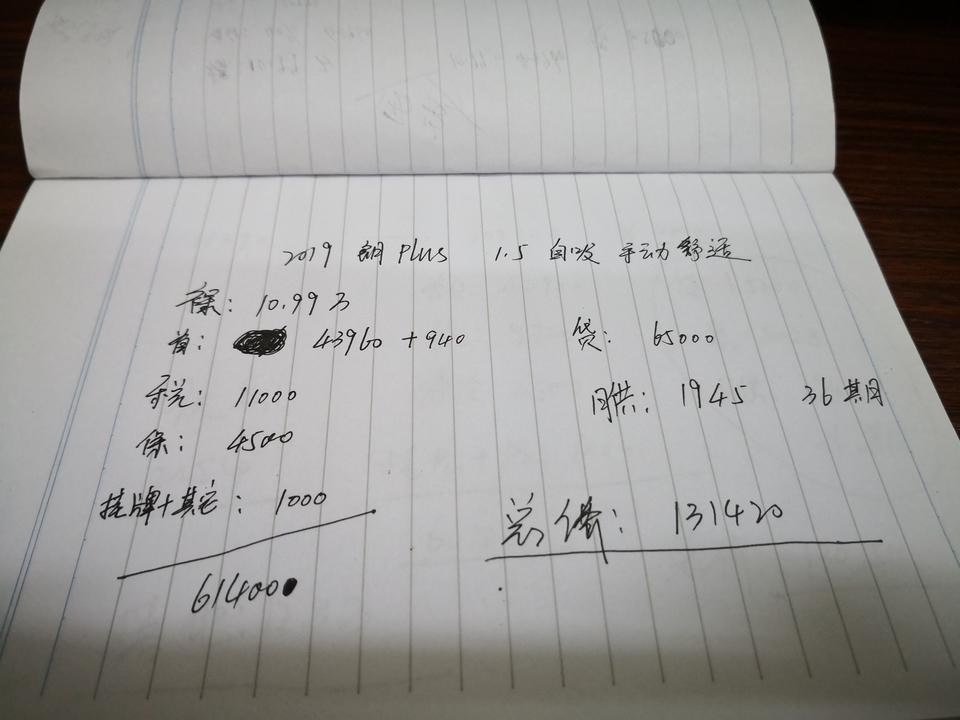 2019 朗 Plus 1.5 自吸 手动 舒适
裸: 10.99万
首: 43960 + 940 贷: 65000
税: 11000 月供: 1945 36期
保: 4500
挂牌+其它: 1000
总价: 131420
61400